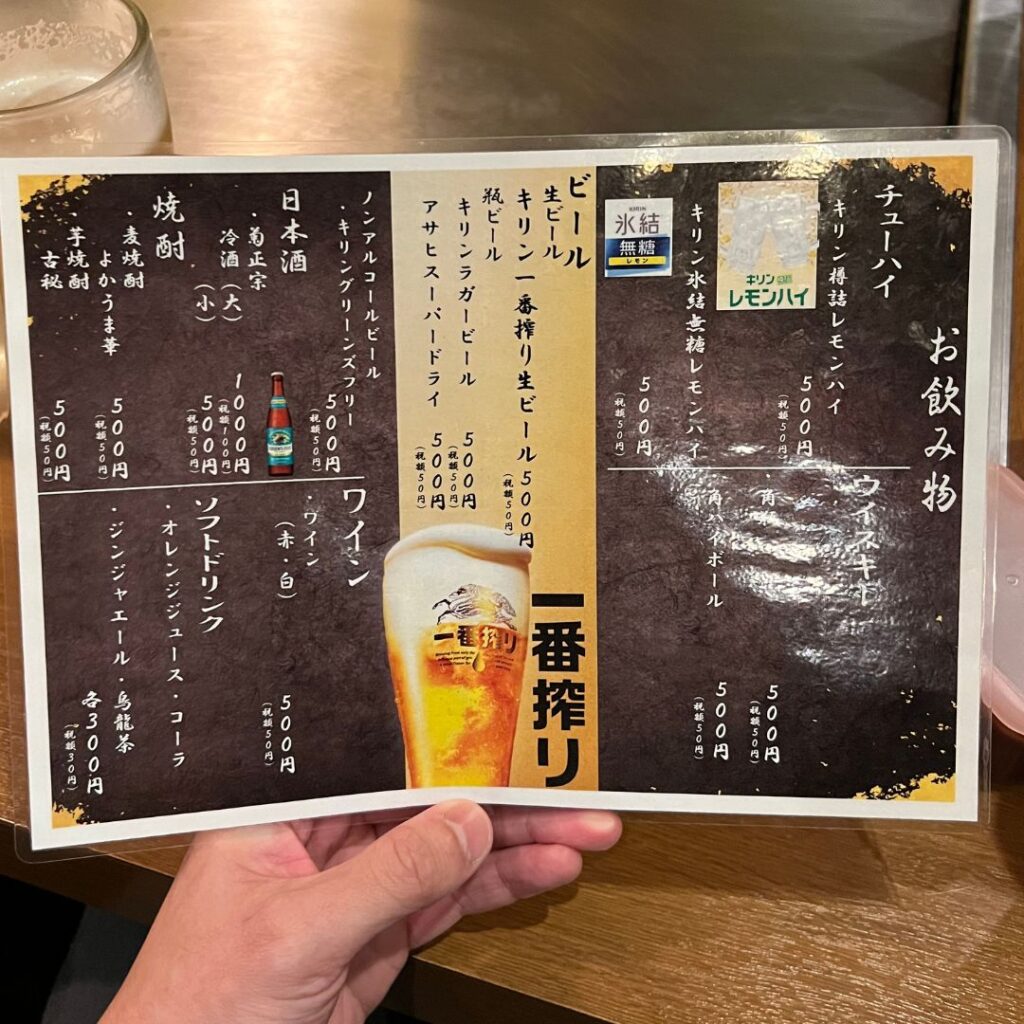 お飲み物
チューハイ
・キリン樽詰レモンハイ
500円
(税額50円)
キリン
レモンハイ
・キリン氷結無糖レモンハイ
500円
(税額50円)
KIRIN
氷結
無糖
レモン
ウイスキー
・角
500円
(税額50円)
・角ハイボール
500円
(税額50円)
ビール
生ビール
キリン一番搾り生ビール 500円
(税額50円)
瓶ビール
キリンラガービール 500円
(税額50円)
アサヒスーパードライ 500円
(税額50円)
一番搾り
一番搾り
ノンアルコールビール
・キリングリーンズフリー
500円
(税額50円)
日本酒
・菊正宗
冷酒(大) 1000円
(税額100円)
(小) 500円
(税額50円)
焼酎
・麦焼酎
よかうま華 500円
(税額50円)
・芋焼酎
古秘 500円
(税額50円)
ワイン
・ワイン
(赤・白) 500円
(税額50円)
ソフトドリンク
・オレンジジュース・コーラ
・ジンジャエール・烏龍茶
各300円
(税額30円)